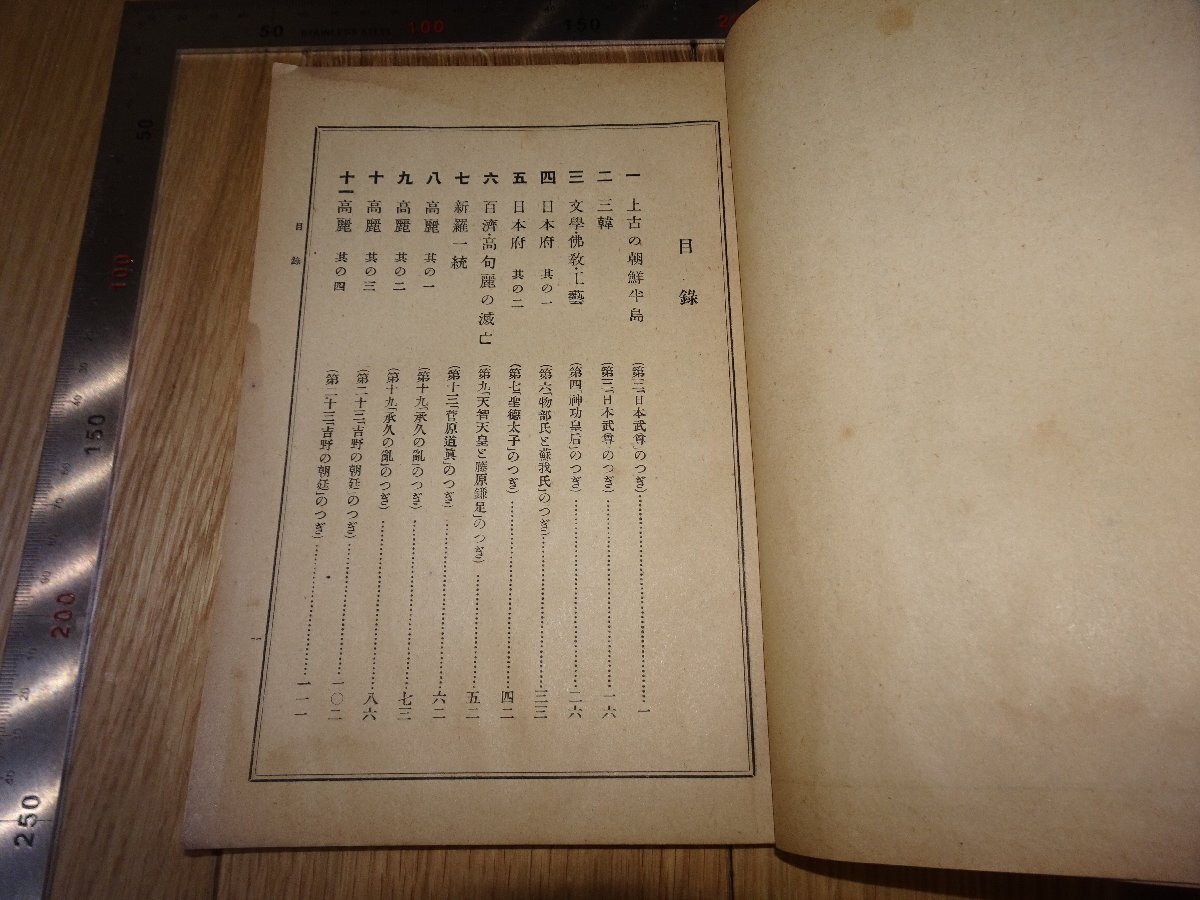 目錄
一 上古の朝鮮半島 (第三「日本武尊」のつぎ)……一
二 三韓 (第三「日本武尊」のつぎ)……一六
三 文學・佛教・工藝 (第四「神功皇后」のつぎ)……二六
四 日本府 其の一 (第六「物部氏と蘇我氏」のつぎ)……三三
五 日本府 其の二 (第七「聖德太子」のつぎ)……四二
六 百濟・高句麗の滅亡 (第九「天智天皇と藤原鎌足」のつぎ)……五二
七 新羅一統 (第十三「菅原道眞」のつぎ)……六二
八 高麗 其の一 (第十九「承久の亂」のつぎ)……七三
九 高麗 其の二 (第十九「承久の亂」のつぎ)……八六
十 高麗 其の三 (第二十三「吉野の朝廷」のつぎ)……一〇二
十一 高麗 其の四 (第二十三「吉野の朝廷」のつぎ)……一一一
目錄
一
50 STAINLESS STEEL 100 150
50
100
150
200
250